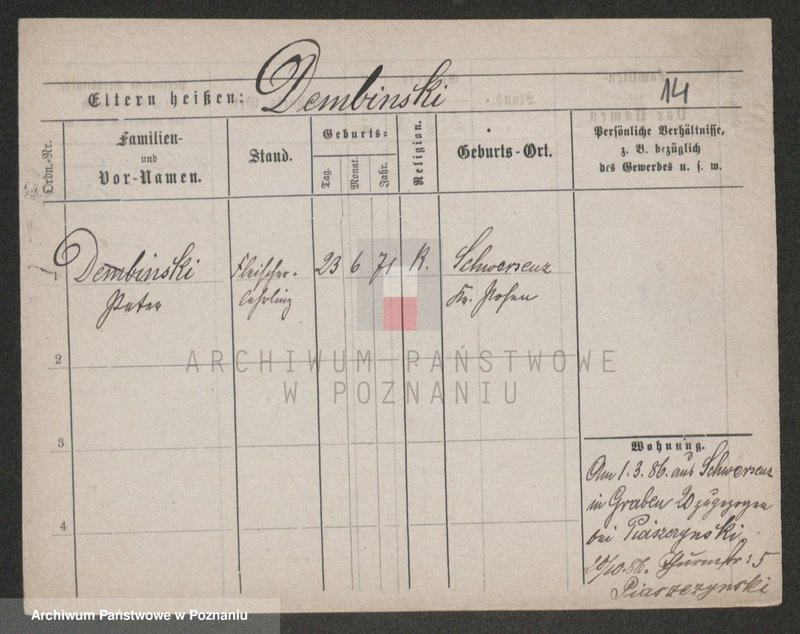 14
Eltern heißen: Dembinski
Ordn.-Nr.
Familien-
und
Vor-Namen.
Stand.
Geburts=
Tag.
Monat.
Jahr.
Religion.
Geburts-Ort.
Persönliche Verhältnisse,
z. B. bezüglich
des Gewerbes u. s. w.
1 Dembinski Fleischer- 23 6 71 K. Schwersenz
Peter lehrling Kr. Posen
2
ARCHIWUM PAŃSTWOWE
W POZNANIU
3
4
Wohnung.
Am 1.3.86. aus Schwersenz
in Graben 20 zugezogen
bei Piaszczynski
20/10.86. Thurmstr: 5
Piaszczynski
Archiwum Państwowe w Poznaniu